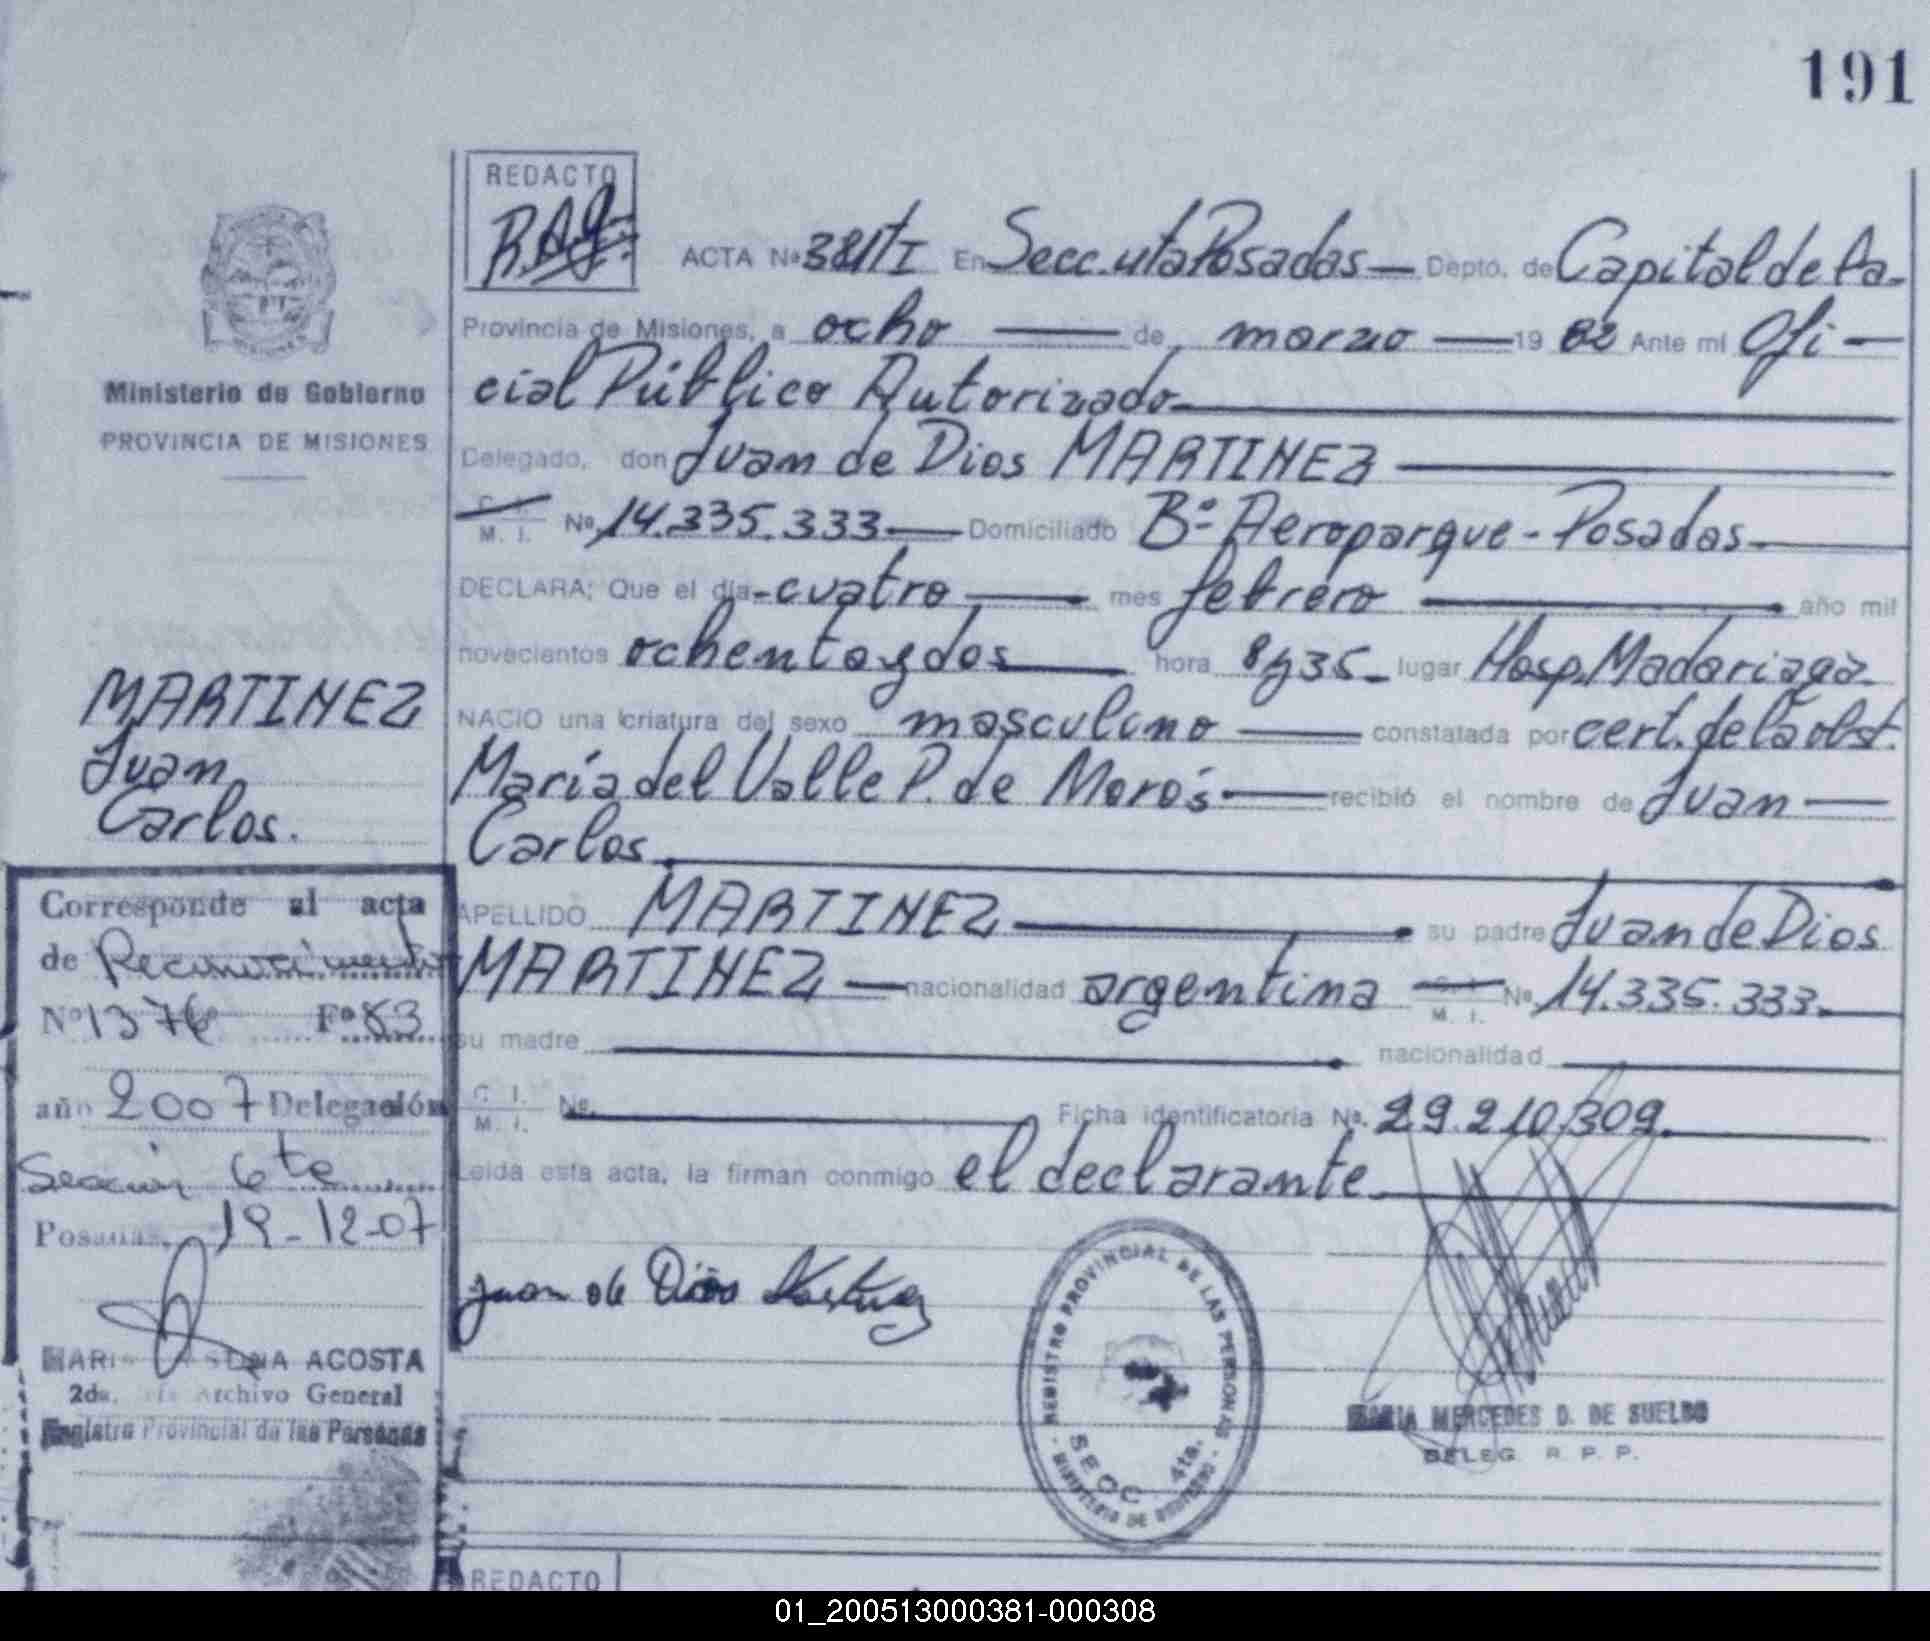 191
REDACTO
R.A.G.
ACTA Nº 381 tI En Secc. 4ta Posadas Depto. de Capital de la
Provincia de Misiones, a ocho de marzo 19 82 Ante mi Ofi
cial Público Autorizado
Delegado, don Juan de Dios MARTINEZ
M. I. Nº 14.335.333 Domiciliado Bº Aeroparque - Posadas
DECLARA; Que el día cuatro mes febrero año mil
novecientos ochenta y dos hora 8y35 lugar Hosp. Madariaga
NACIO una criatura del sexo masculino constatada por cert. de la obst.
María del Valle P. de Morós recibió el nombre de Juan
Carlos
APELLIDO MARTINEZ su padre Juan de Dios
MARTINEZ nacionalidad argentina C. I. M. I. Nº 14.335.333
su madre nacionalidad
C. I. M. I. Nº Ficha identificatoria Nº 29.210.309
Leída esta acta, la firman conmigo el declarante
Juan de Dios Martinez
REGISTRO PROVINCIAL DE LAS PERSONAS
SECC 4ta.
MINISTERIO DE GOBIERNO
MARIA MERCEDES D. DE SUELDO
DELEG. R. P. P.
MISIONES
Ministerio de Gobierno
PROVINCIA DE MISIONES
MARTINEZ
Juan
Carlos.
Corresponde al acta
de Reconocimiento
Nº 1376 Fº 83
año 2007 Delegación
Sección 6ta
Posadas, 19-12-07
ACOSTA
2da. Archivo General
Registro Provincial de las Personas
REDACTO
01_200513000381-000308